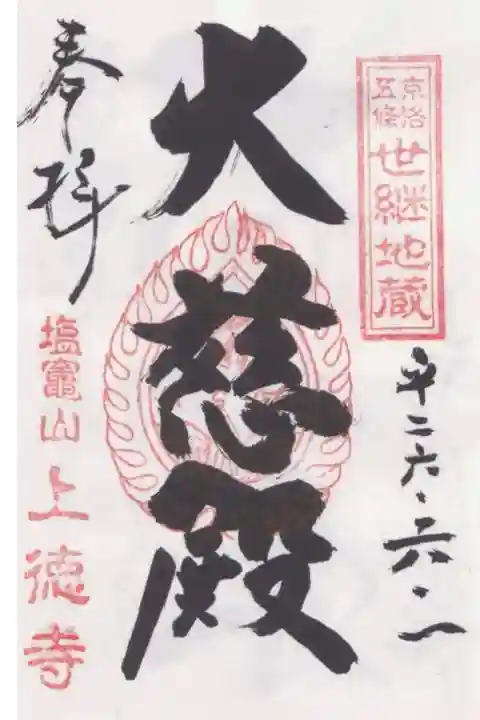 京洛
五條
世継地蔵
平二六・六・一
大慈殿
奉拝
塩竈山
上徳寺